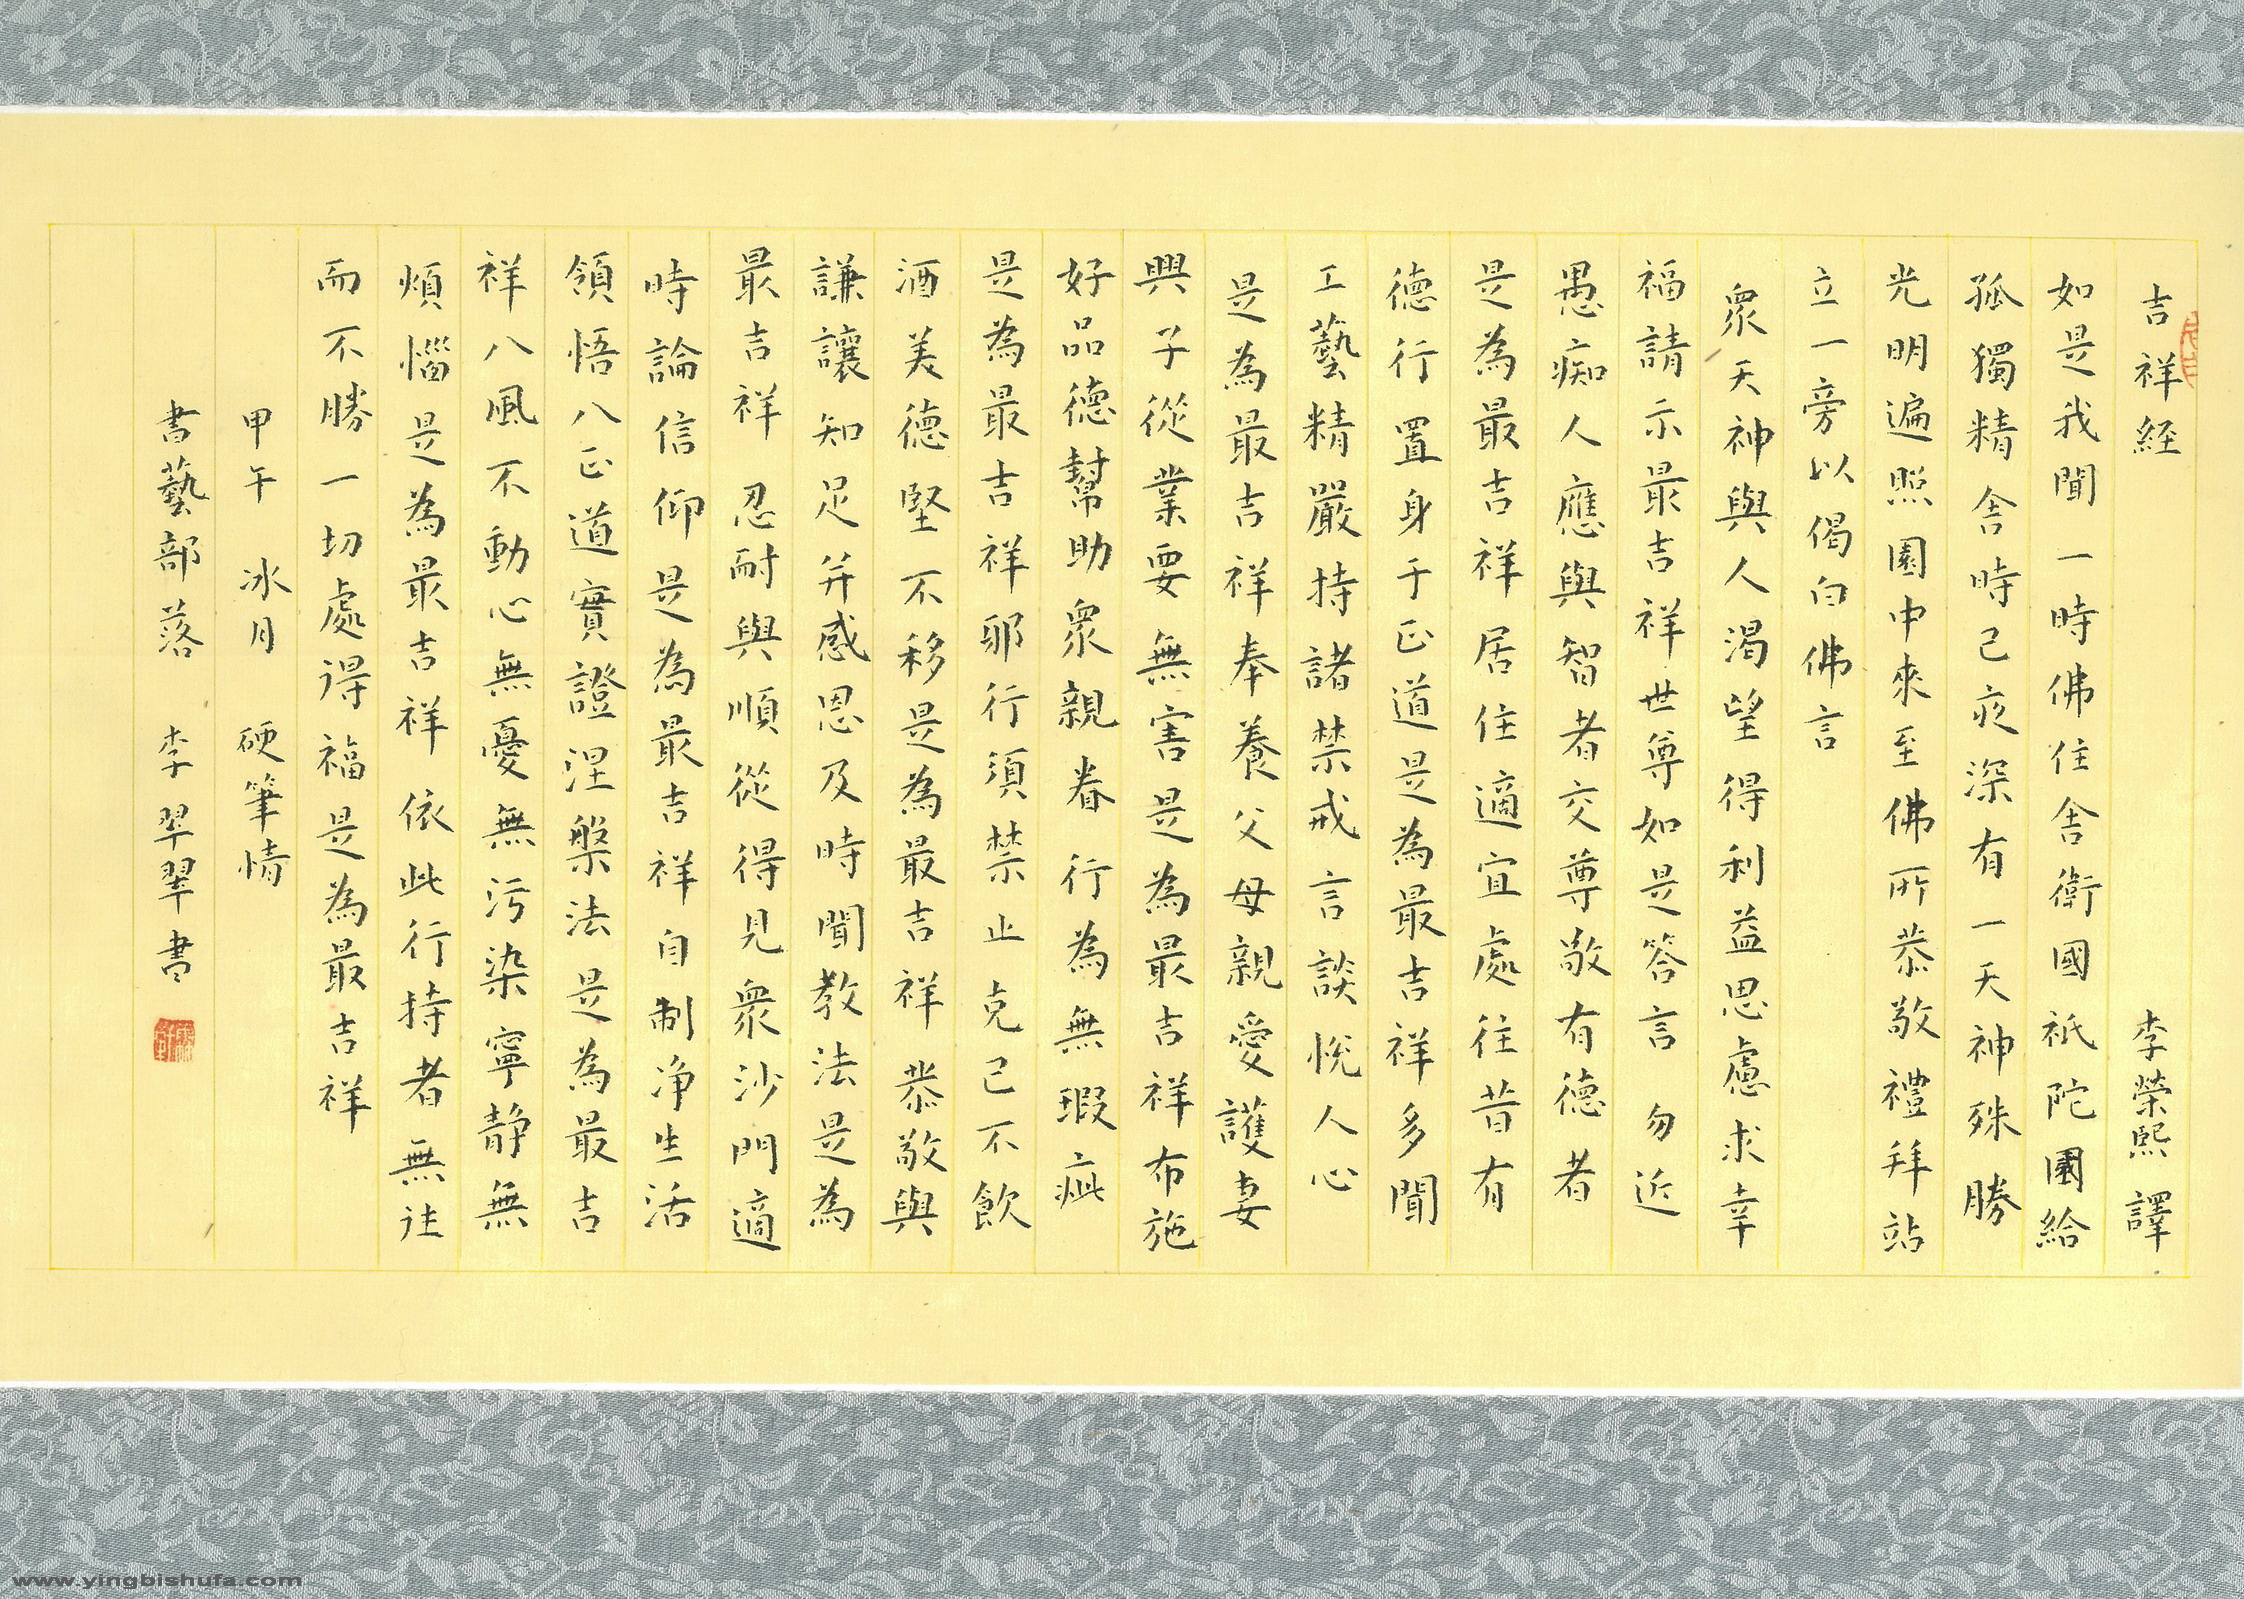 吉祥経 李榮熙譯
如是我聞一時佛住舍衛國祇陀園給
孤獨精舍時已夜深有一天神殊勝
光明遍照園中來至佛所恭敬禮拜站
立一旁以偈白佛言
眾天神與人渴望得利益思慮求幸
福請示最吉祥世尊如是答言勿近
愚痴人應與智者交尊敬有德者
是為最吉祥居住適宜處往昔有
德行置身于正道是為最吉祥多聞
工藝精嚴持諸禁戒言談悅人心
是為最吉祥奉養父母親愛護妻
與子從業要無害是為最吉祥布施
好品德幫助眾親眷行為無瑕疵
是為最吉祥邪行須禁止克己不飲
酒美德堅不移是為最吉祥恭敬與
謙讓知足并感恩及時聞教法是為
最吉祥忍耐與順從得見眾沙門適
時論信仰是為最吉祥自制净生活
領悟八正道實證涅槃法是為最吉
祥八風不動心無憂無污染寧静無
煩惱是為最吉祥依此行持者無往
而不勝一切處得福是為最吉祥
甲午冰月 硬筆情
書藝部落 李翠翠書
www.yingbishufa.com